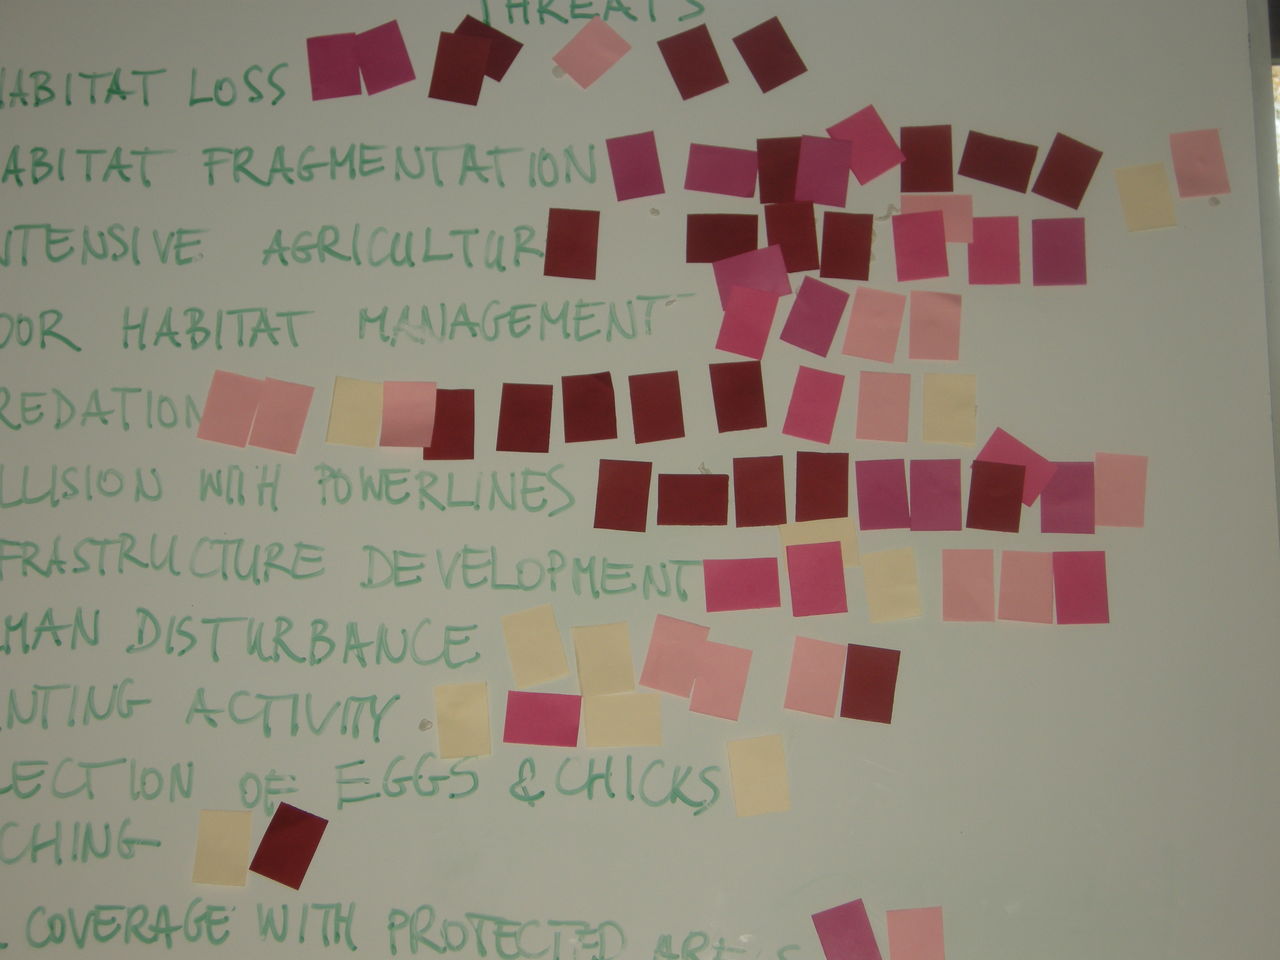 THREATS
HABITAT LOSS
ABITAT FRAGMENTATION
NTENSIVE AGRICULTUR
OOR HABITAT MANAGEMENT
REDATION
LLISION WITH POWERLINES
FRASTRUCTURE DEVELOPMENT
MAN DISTURBANCE
NTING ACTIVITY
LECTION OF EGGS & CHICKS
CHING
COVERAGE WITH PROTECTED AREAS